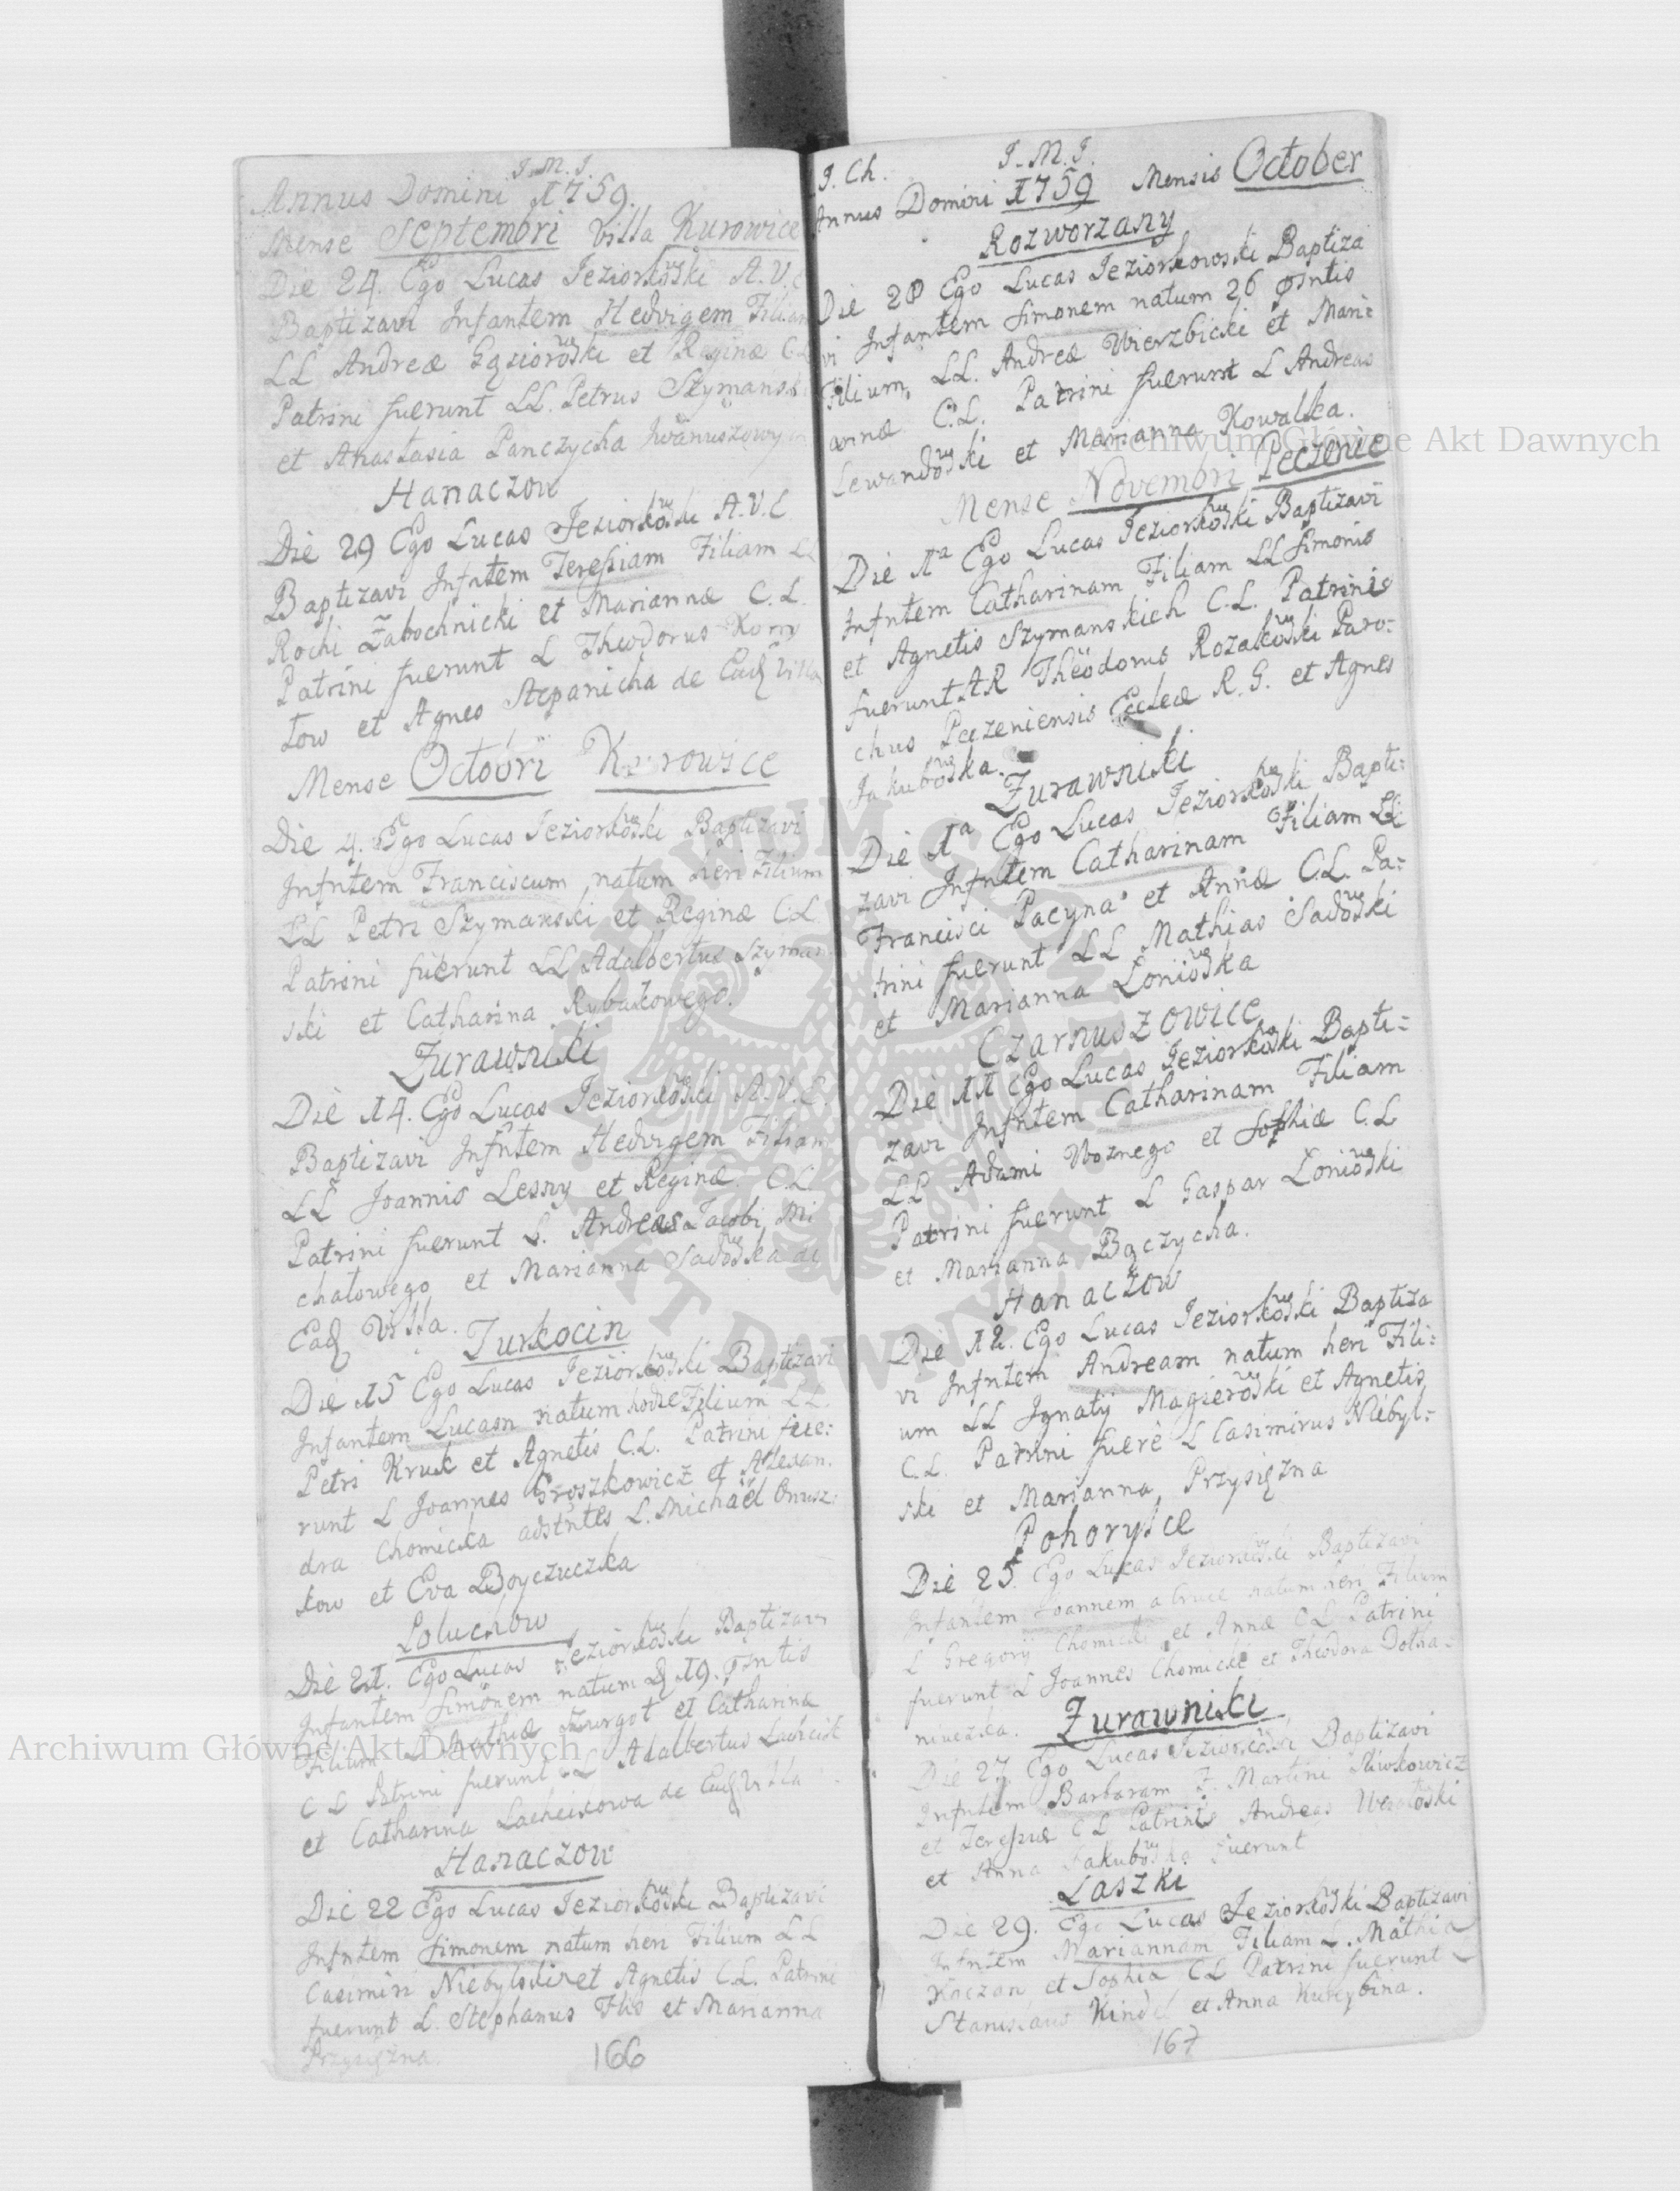 J.M.J.
Annus Domini 1759.
Mense Septembri Villa Kurowice
Die 24. Ego Lucas Jeziorkowski A.V.C
Baptizavi Infantem Hedvigem Filiam
LL Andreæ Gąsiorowski et Reginæ C.L
Patrini fuerunt LL. Petrus Szymański
et Anastasia Panczycha
Hanaczow
Die 29 Ego Lucas Jeziorkowski A.V.C
Baptizavi Infntem Teresiam Filiam LL
Rochi Zabochnicki et Mariannæ C.L.
Patrini fuerunt L Theodorus
tow et Agnes Stepanicha de Eadq Villa
Mense Octobri Kurowice
Die 4. Ego Lucas Jeziorkowski Baptizavi
Infntem Franciscum natum heri Filium
LL Petri Szymanski et Reginæ C.L
Patrini fuerunt LL Adalbertus Szyman
ski et Catharina Rybakowego.
Zurawniki
Die 14. Ego Lucas Jeziorkowski A.V.C.
Baptizavi Infntem Hedvigem Filiam
LL Joannis Lesny et Reginæ C.L.
Patrini fuerunt L. Andreas Jacobi Mi
chałowego et Marianna Sadowska de
Eadq Villa.
Turkocin
Die 15 Ego Lucas Jeziorkowski Baptizavi
Infantem Lucam natum hodie Filium LL.
Petri Kruk et Agnetis C.L. Patrini fue:
runt L Joannes Groszkowicz et Alexan.
dra Chomicka adstntes L. Michaël Onusz:
kow et Eva Boyczuczka
Loluchow
Die 21. Ego Lucas Jeziorkowski Baptizavi
Infantem Simonem natum d 19. pntis
Filium L Mathiæ Szurgot et Catharina
C L Patrini fuerunt L Adalbertus
et Catharina Lacheikowa de Eadq Villa
Hanaczow
Die 22 Ego Lucas Jeziorkowski Baptizavi
Infntem Simonem natum heri Filium LL
Casimiri Niebylski et Agnetis C.L. Patrini
fuerunt L. Stephanus Flis et Marianna
Przysiężna.
166
J. Ch. J.M.J.
Annus Domini 1759 Mensis October
Rozworzany
Die 28 Ego Lucas Jeziorkowski Baptiza
vi Infantem Simonem natum 26 pntis
Filium LL. Andreæ Wierzbicki et Mari:
annæ C.L. Patrini fuerunt L Andreas
Lewandowski et Marianna Kowalka.
Mense Novembri Peczenie
Die 1a Ego Lucas Jeziorkowski Baptizavi
Infntem Catharinam Filiam LL Simonis
et Agnetis Szymanskich C.L. Patrini
fuerunt AR Theodorus Rozakowski Paro:
chus Peczeniensis Eccleæ R. G. et Agnes
Jakubowska.
Zurawniki
Die 1a Ego Lucas Jeziorkowski Bapti:
zavi Infntem Catharinam Filiam LL
Francisci Pacyna et Annæ C.L. Pa:
trini fuerunt LL Mathias Sadowski
et Marianna Loniowska
Czarnuszowice
Die 11 Ego Lucas Jeziorkowski Bapti:
zavi Infntem Catharinam Filiam
LL Adami Woznego et Sophiæ C.L
Patrini fuerunt L Gaspar Loniowski
et Marianna Bączycha.
Hanaczow
Die 12. Ego Lucas Jeziorkowski Baptiza
vi Infntem Andream natum heri Fili:
um LL Ignatij Magierowski et Agnetis
C.L. Patrini fuere L Casimirus Niebyl:
ski et Marianna Przysiężna
Pohorylce
Die 25. Ego Lucas Jeziorkowski Baptizavi
Infantem Joannem a Cruce natum heri Filium
L Gregorij Chomicki et Annæ C L Patrini
fuerunt L Joannes Chomicki et Theodora Dotha:
niuczka.
Zurawniki
Die 27. Ego Lucas Jeziorkowski Baptizavi
Infntem Barbaram F. Martini Sliwkowicz
et Teresiæ C L Patrini Andreas
et Anna Jakubowska fuerunt
Laszki
Die 29. Ego Lucas Jeziorkowski Baptizavi
Infntem Mariannam Filiam L. Mathia
Koczon et Sophia C L Patrini fuerunt
Stanislaus Kindel et Anna Kureybina.
167
Archiwum Główne Akt Dawnych
Archiwum Główne Akt Dawnych
ARCHIWUM GŁÓWNE AKT DAWNYCH